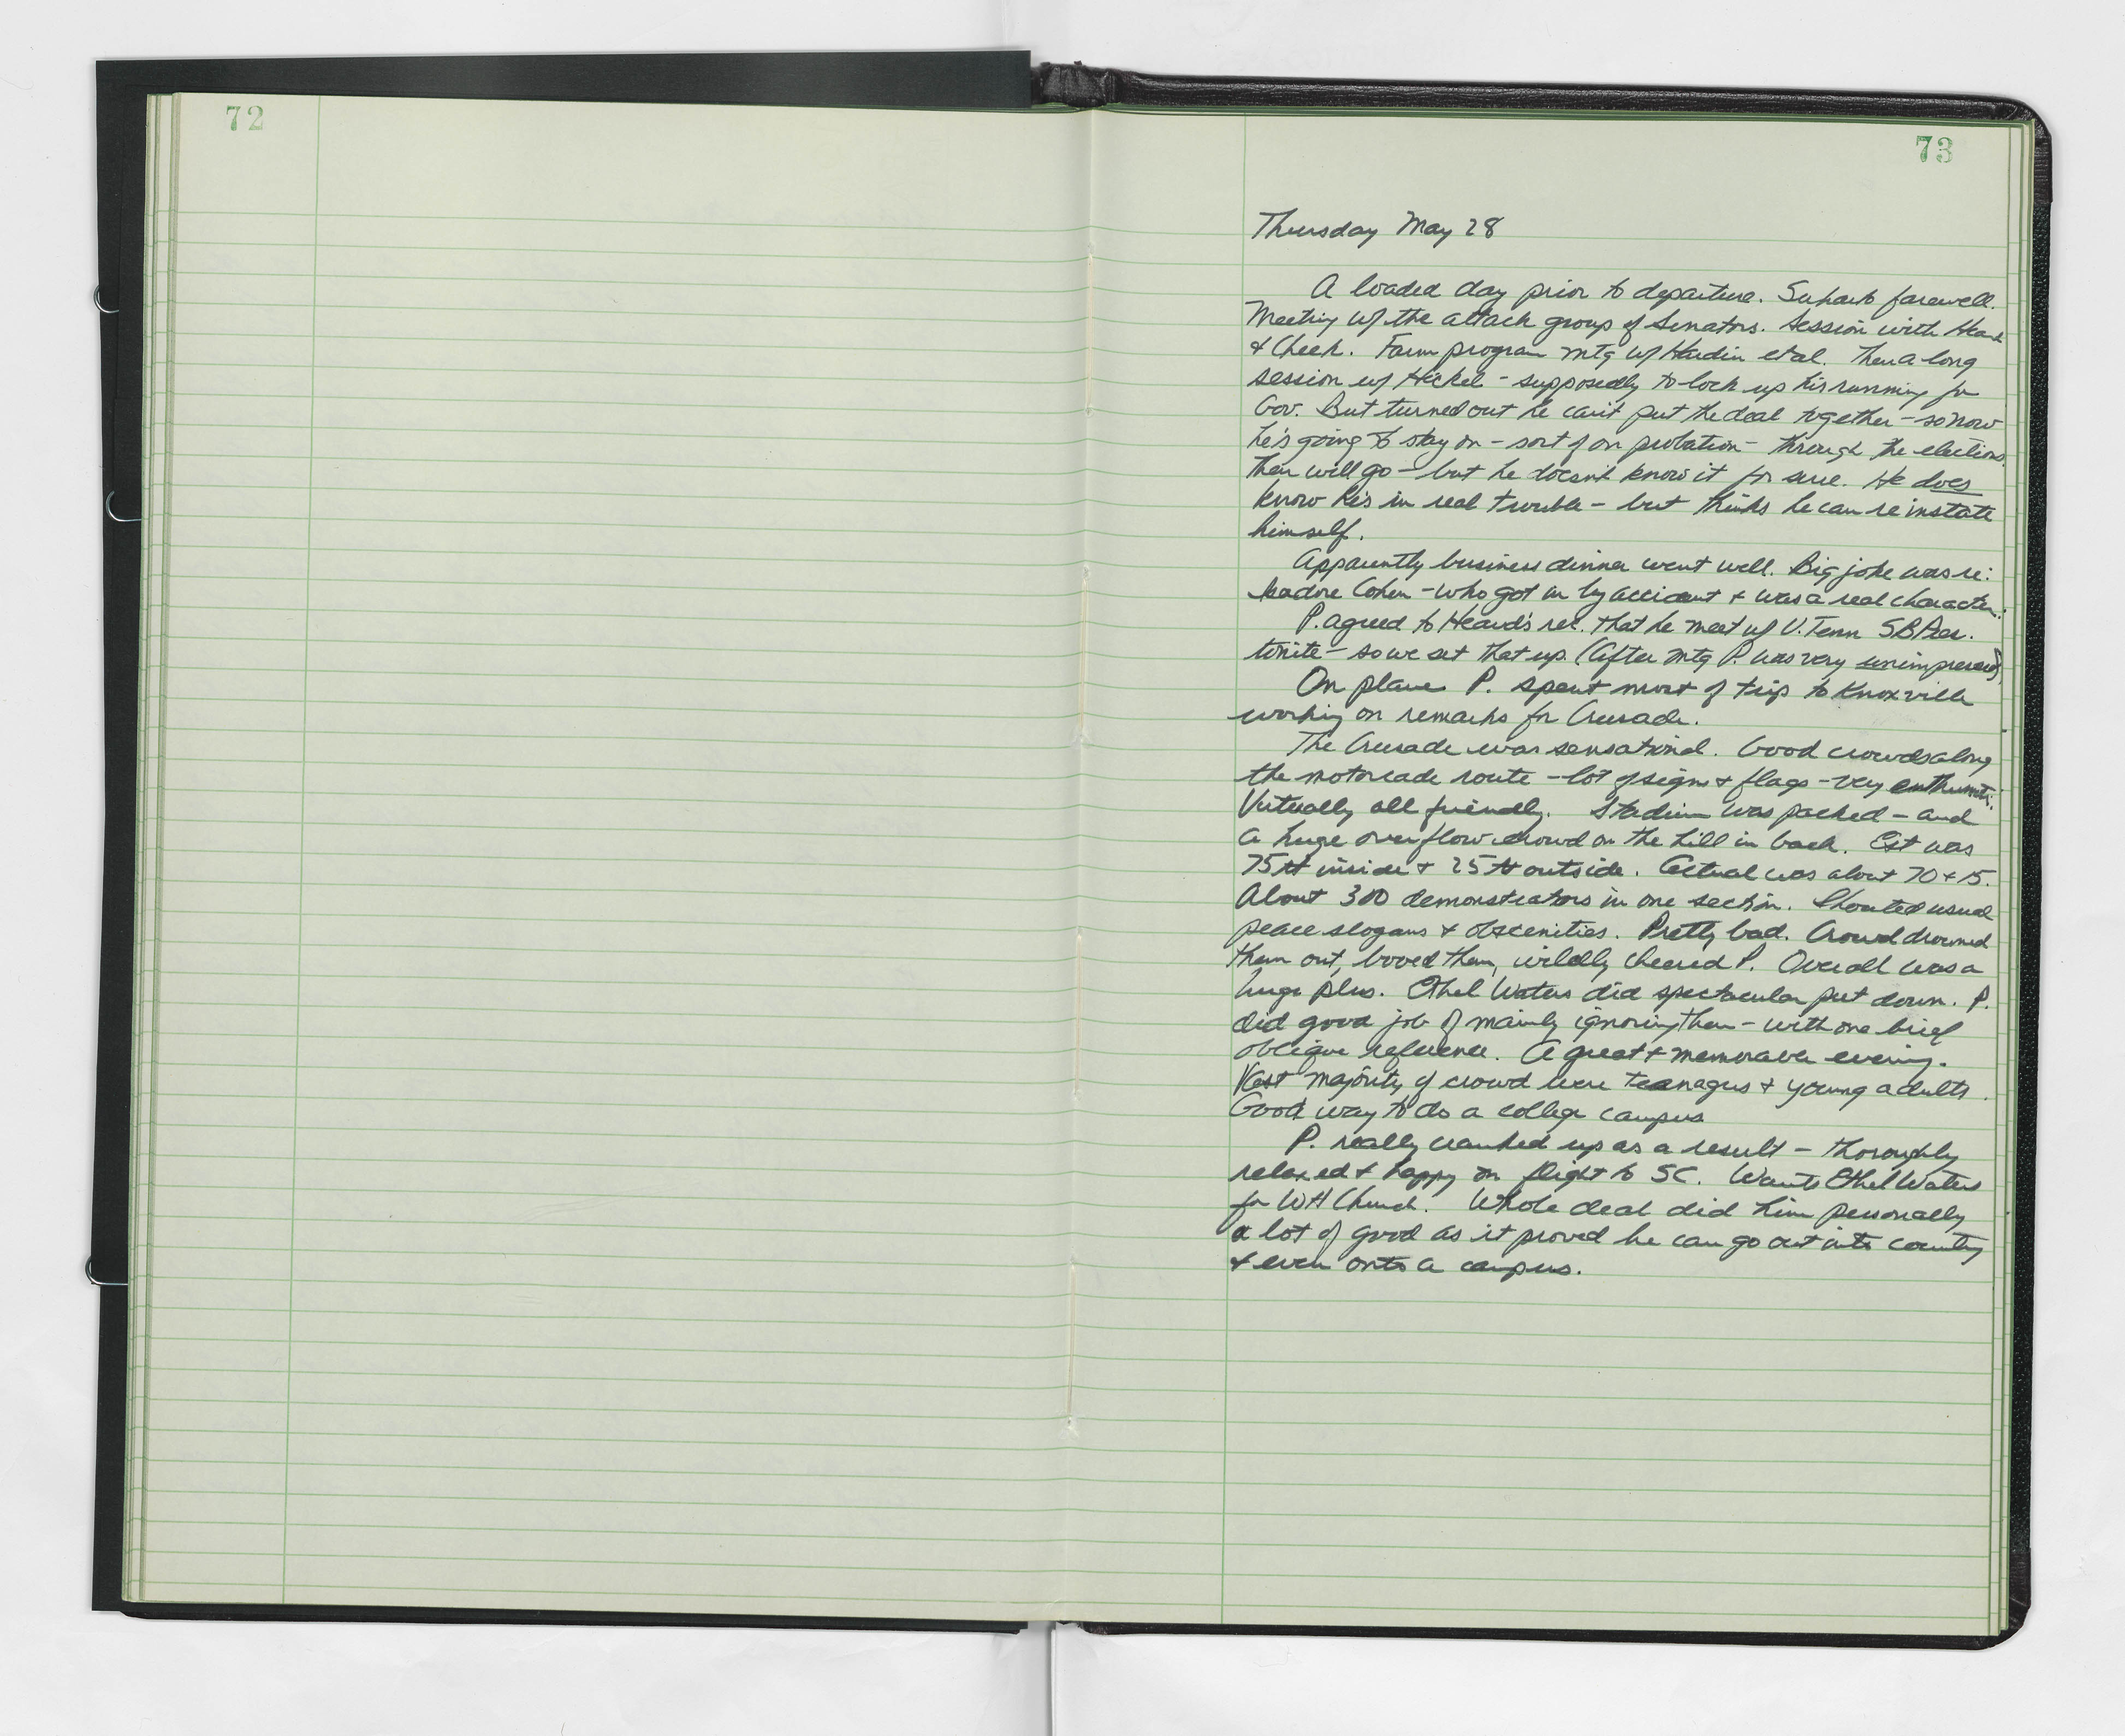 72
73
Thursday May 28
A loaded day prior to departure. Suharto farewell.
Meeting w/ the attack group of Senators. Session with Heard
& Cheek. Farm program mtg w/ Hardin et al. Then a long
session w/ Hickel - supposedly to lock up his running for
Gov. But turned out he can't put the deal together - so now
he's going to stay on - sort of on probation - through the elections.
Then will go - but he doesn't know it for sure. He does
know he's in real trouble - but thinks he can reinstate
himself.
Apparently business dinner went well. Big joke was re:
Isadore Cohen - who got in by accident & was a real character.
P. agreed to Heard's rec. that he meet w/ U. Tenn SB Pres.
tonite - so we set that up. (After mtg P. was very unimpressed)
On plane P. spent most of trip to Knoxville
working on remarks for Crusade.
The Crusade was sensational. Good crowds along
the motorcade route - lot of signs & flags - very
Virtually all friendly. Stadium was packed - and
a huge overflow crowd on the hill in back. Est was
75 M inside & 25 M outside. Actual was about 70 + 15.
About 300 demonstrators in one section. Shouted usual
peace slogans & obscenities. Pretty bad. Crowd drowned
them out, booed them, wildly cheered P. Overall was a
huge plus. Ethel Waters did spectacular put down. P.
did good job of mainly ignoring them - with one brief
oblique reference. A great & memorable evening.
Vast majority of crowd were teenagers & young adults.
Good way to do a college campus
P. really cranked up as a result - thoroughly
relaxed & happy on flight to SC. Wants Ethel Waters
for WH Church. Whole deal did him personally
a lot of good as it proved he can go out into country
& even onto a campus.